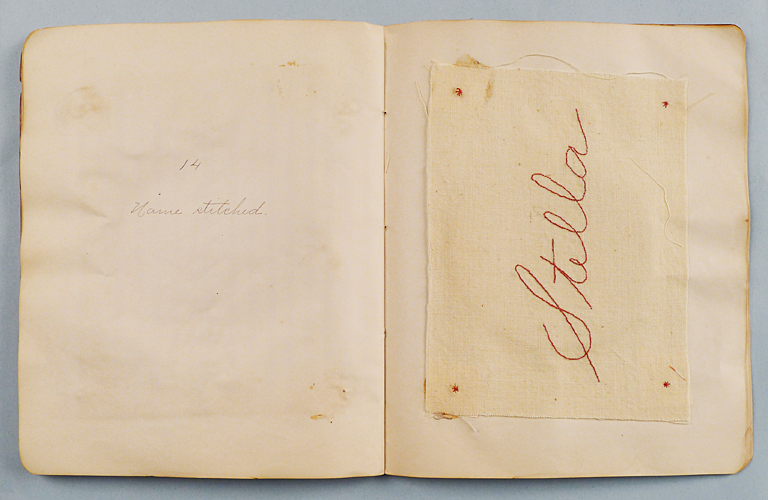 14
Name stitched.
Stella